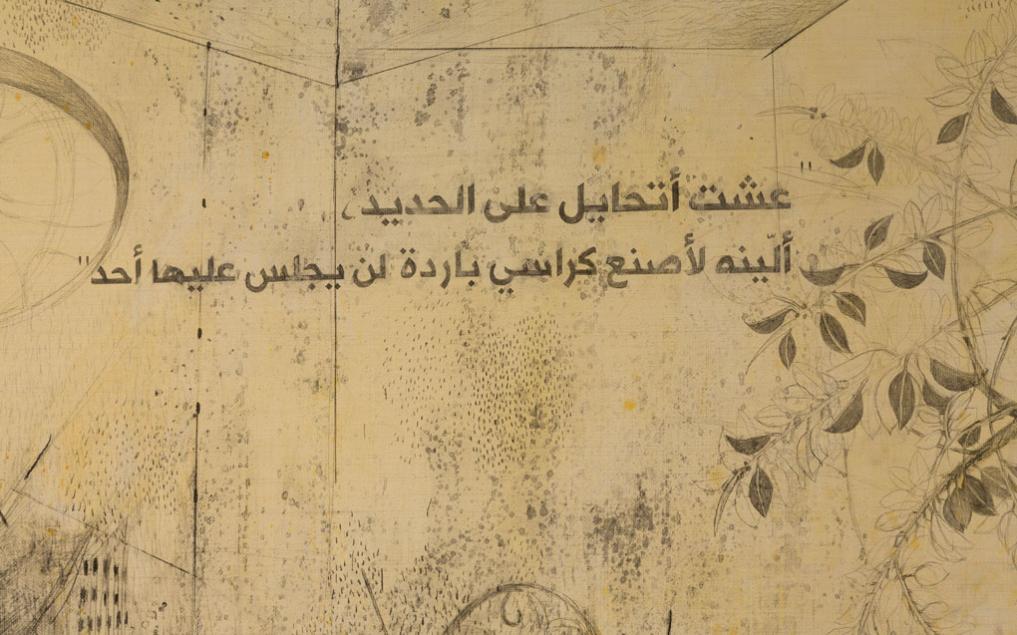 "عشت أتحايل على الحديد،
أليّنه لأصنع كراسي باردة لن يجلس عليها أحد"